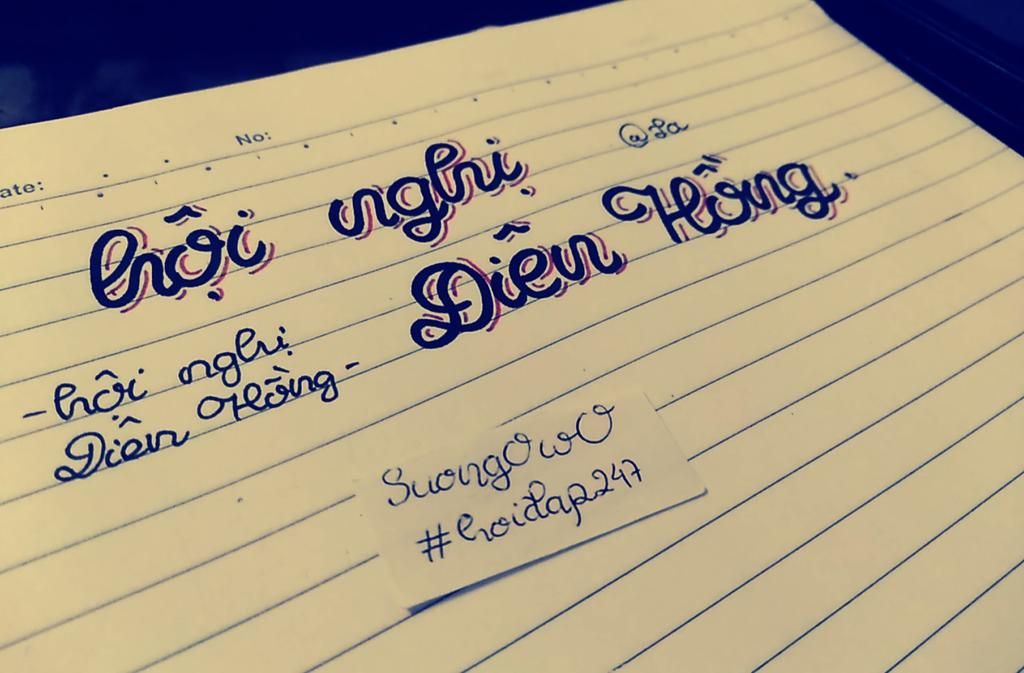 No:
ate:
@Ja
hội nghị
Diên Hồng.
- hội nghị
Diên Hồng -
SuongOwO
#hoidap247